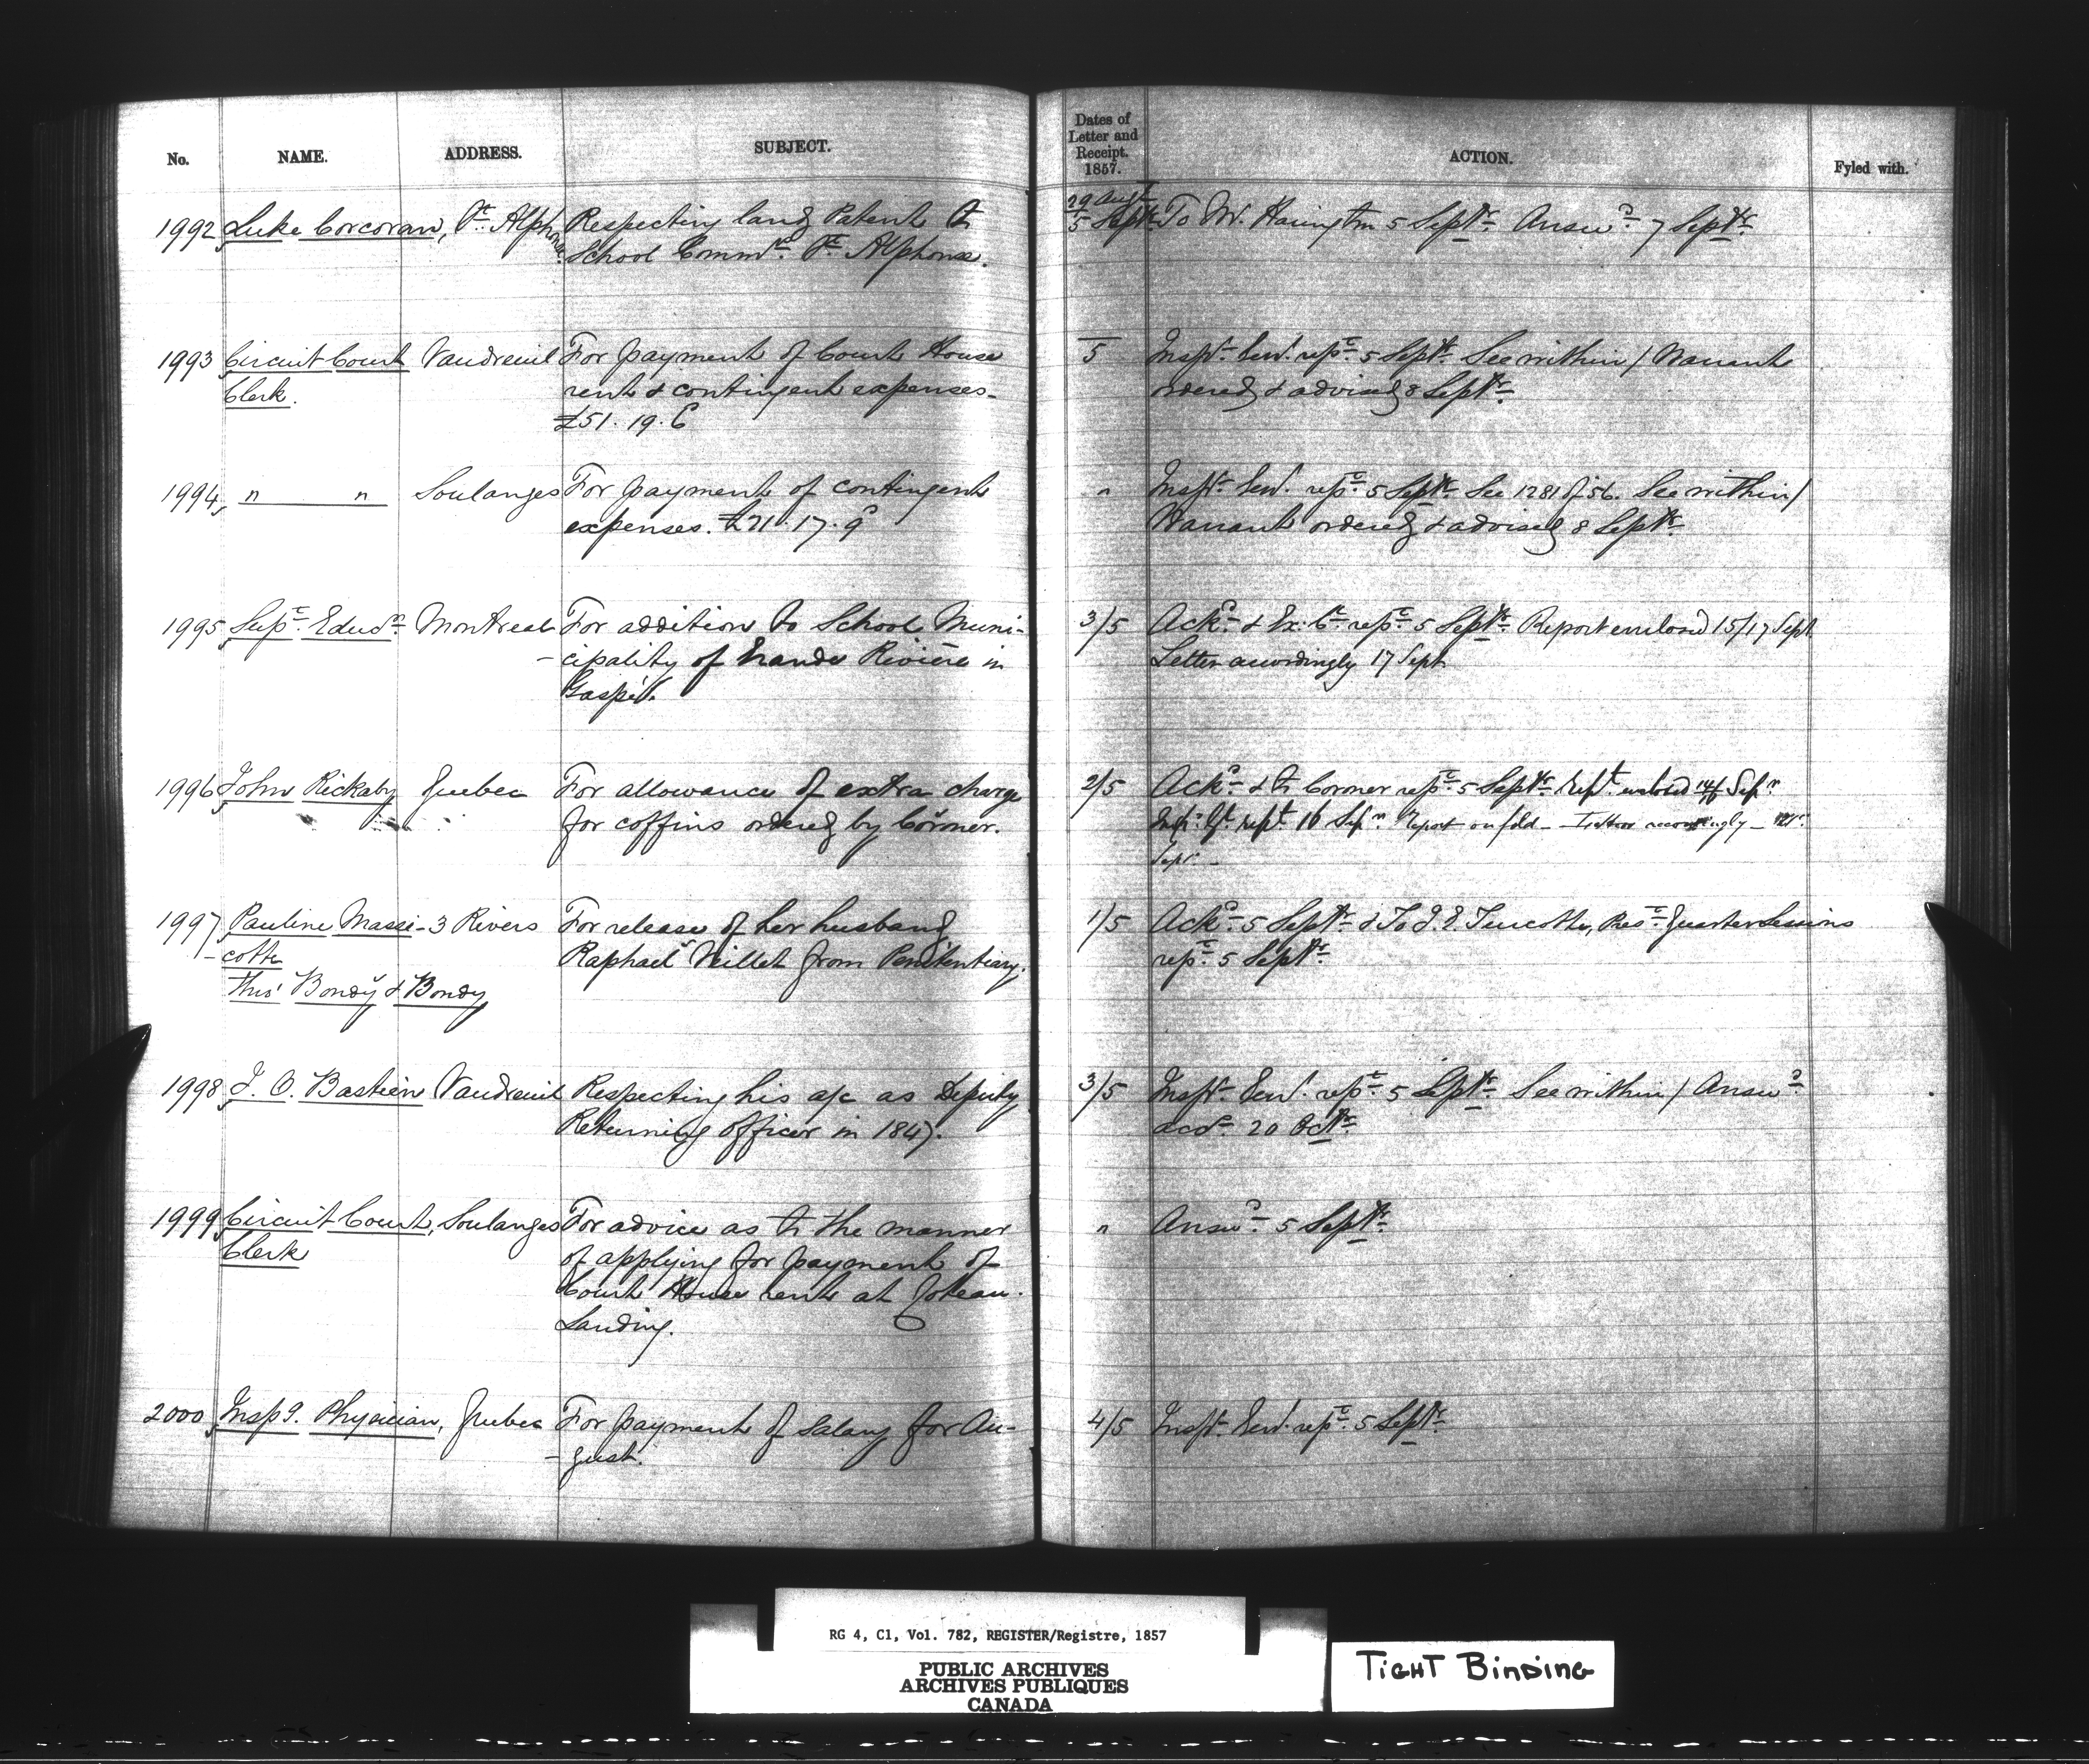 No. NAME. ADDRESS. SUBJECT.
1992 Luke Corcoran, St. Alphonse Respecting land Patent to
School Commrs. St. Alphonse.
1993 Circuit Court Vaudreuil For payment of Court House
Clerk. rent & contingent expenses-
£51. 19. 6
1994 " " Soulanges For payment of contingent
expenses. £21. 17. 9
1995 Supt. Educn. Montreal For addition to School Muni-
-cipality of Grande Rivière in
Gaspé.
1996 John Rickaby Quebec For allowance of extra charge
for coffins ordered by Coroner.
1997 Pauline Massi- 3 Rivers For release of her husband
-cotte Raphael Veillet from Penitentiary.
Thro' Bondy & Bondy
1998 J. O. Bastien Vaudreuil Respecting his a/c as Deputy
Returning Officer in 1847.
1999 Circuit Court, Soulanges For advice as to the manner
Clerk of applying for payment of
Court House rent at Coteau
Landing.
2000 Inspg. Physician, Quebec For payment of salary for Au-
-gust.
Dates of
Letter and
Receipt.
1857. ACTION. Fyled with.
29 Augt
5 Septr. To Mr. Harington 5 Septr. Answd. 7 Septr.
5 Inspr. Genl. repe. 5 Septr. See within / Warrant
ordered & advised 8 Septr.
" Inspr. Genl. repe. 5 Septr. See 1281 of 56. See within /
Warrant ordered & advised 8 Septr.
3/5 Ackd. & Ex: C. repe. 5 Septr. Report enclosed 15/17 Sept.
Letter accordingly 17 Sept
2/5 Ackd. & to Coroner repe. 5 Septr. Rept. enclosed Sepr.
rept. 16 Sepr. Report on fold - Letter accordingly -
Sepr. -
1/5 Ackd. 5 Septr. & To J. E. Turcotte, Quarter Sessions
repe. 5 Septr.
3/5 Inspr. Genl. repe. 5 Septr. See within / Answd.
accd. 20 Octr.
" Answd. 5 Septr.
4/5 Inspr. Genl. repe. 5 Septr.
RG 4, C1, Vol. 782, REGISTER/Registre, 1857
PUBLIC ARCHIVES
ARCHIVES PUBLIQUES
CANADA
TIGHT BINDING